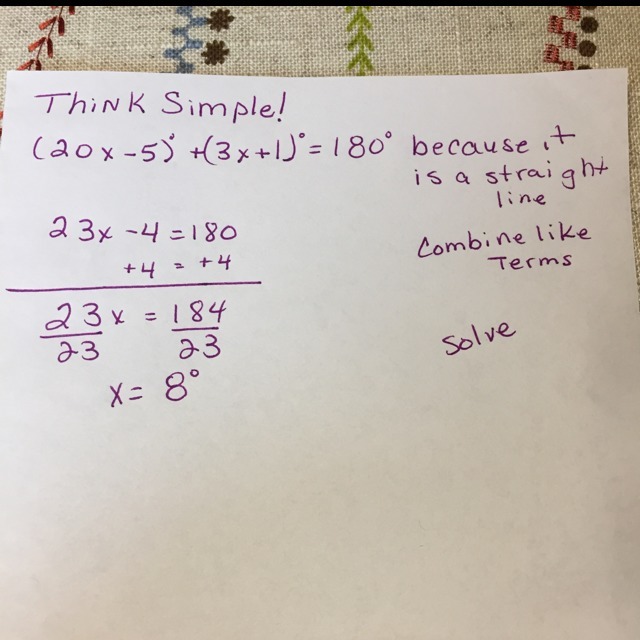 Think Simple!
(20x-5)° +(3x+1)° = 180° because it
is a straight
line
23x -4 = 180
+4 = +4
Combine like
Terms
23x = 184
23 23
Solve
x = 8°